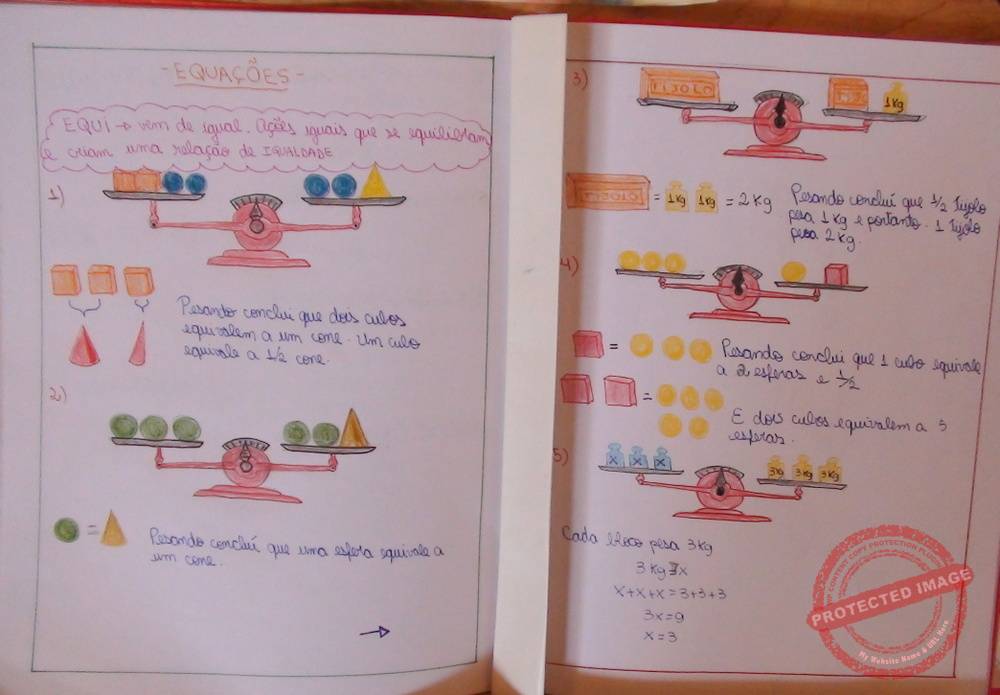 - EQUAÇÕES -
EQUI → vem de igual. Ações iguais que se equilibram
e criam uma relação de IGUALDADE
1)
Pesando conclui que dois cubos
equivalem a um cone. Um cubo
equivale a 1/2 cone.
2)
=
Pesando conclui que uma esfera equivale a
um cone.
→
3)
TIJOLO
1Kg
TIJOLO = 1Kg 1Kg = 2 Kg
Pesando conclui que 1/2 tijolo
pesa 1 Kg e portanto. 1 tijolo
pesa 2 Kg.
4)
=
Pesando conclui que 1 cubo equivale
a 2 esferas e 1/2
=
E dois cubos equivalem a 5
esferas.
5)
X X X
3Kg 3Kg 3Kg
Cada bloco pesa 3 Kg
3 Kg = x
x+x+x = 3+3+3
3x = 9
x = 3
UM CONTENT COPY PROTECTION PLUGIN
PROTECTED IMAGE
My Website Name & URL Here